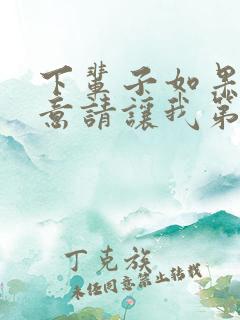 下輩子如果
意請讓我第
丁克族
未任同意禁止转载